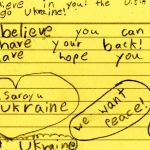 believe in you! the U.S.A
go Ukraine!
believe you can
have your back!
have hope you
Sarayu
Ukraine
we want
peace!
Ukraine